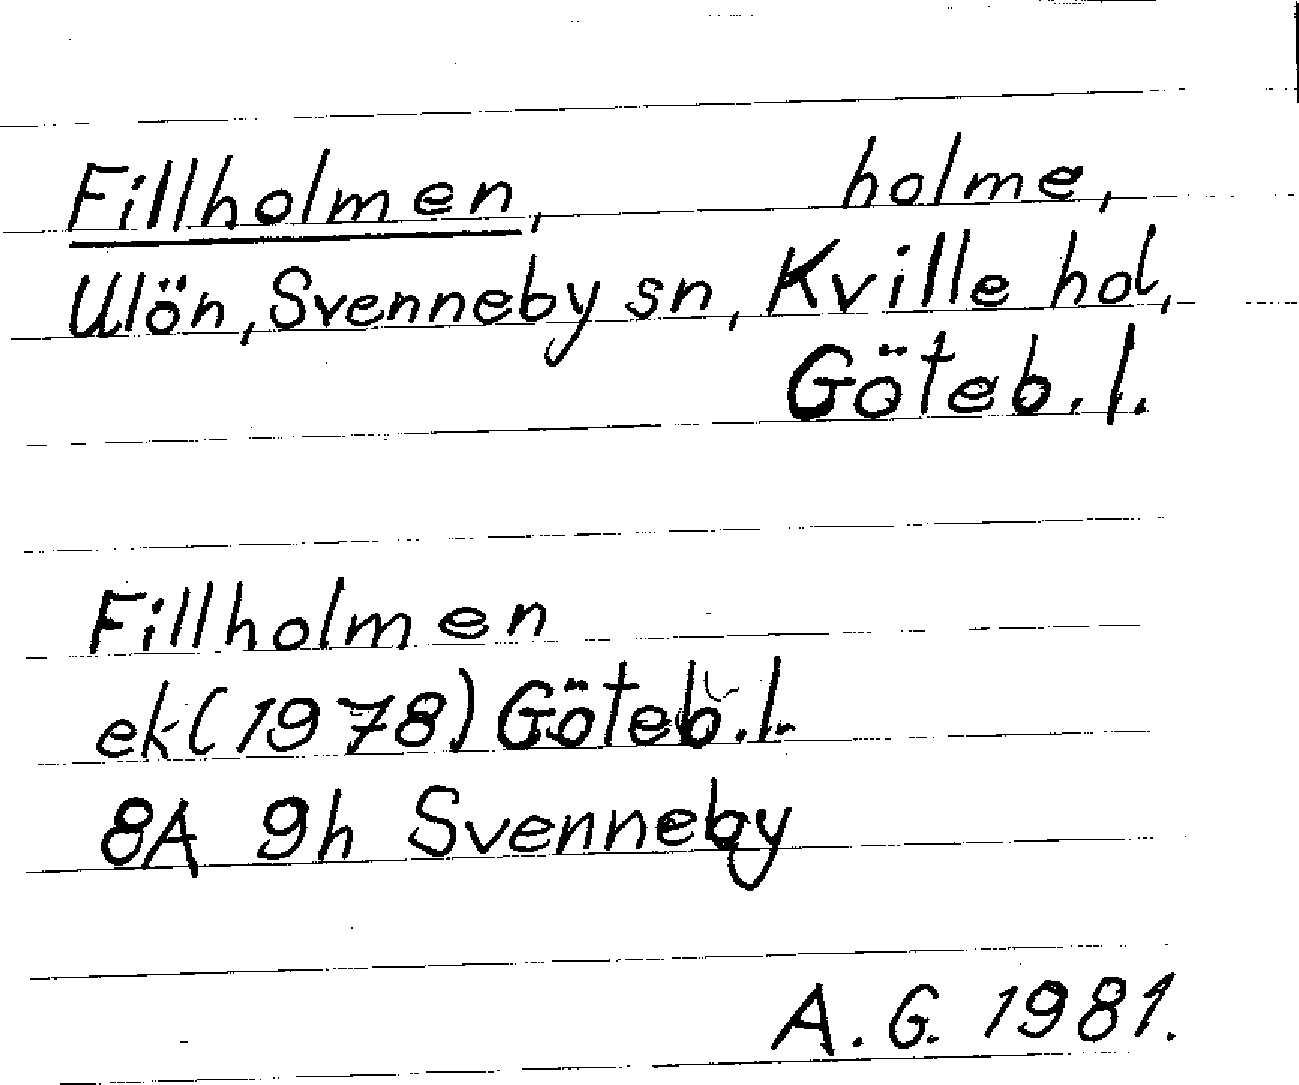 Fillholmen, holme,
Ulön, Svenneby sn, Kville hd,
Göteb. l.
Fillholmen
ek (1978) Göteb. l.
8A 9h Svenneby
A. G. 1981.